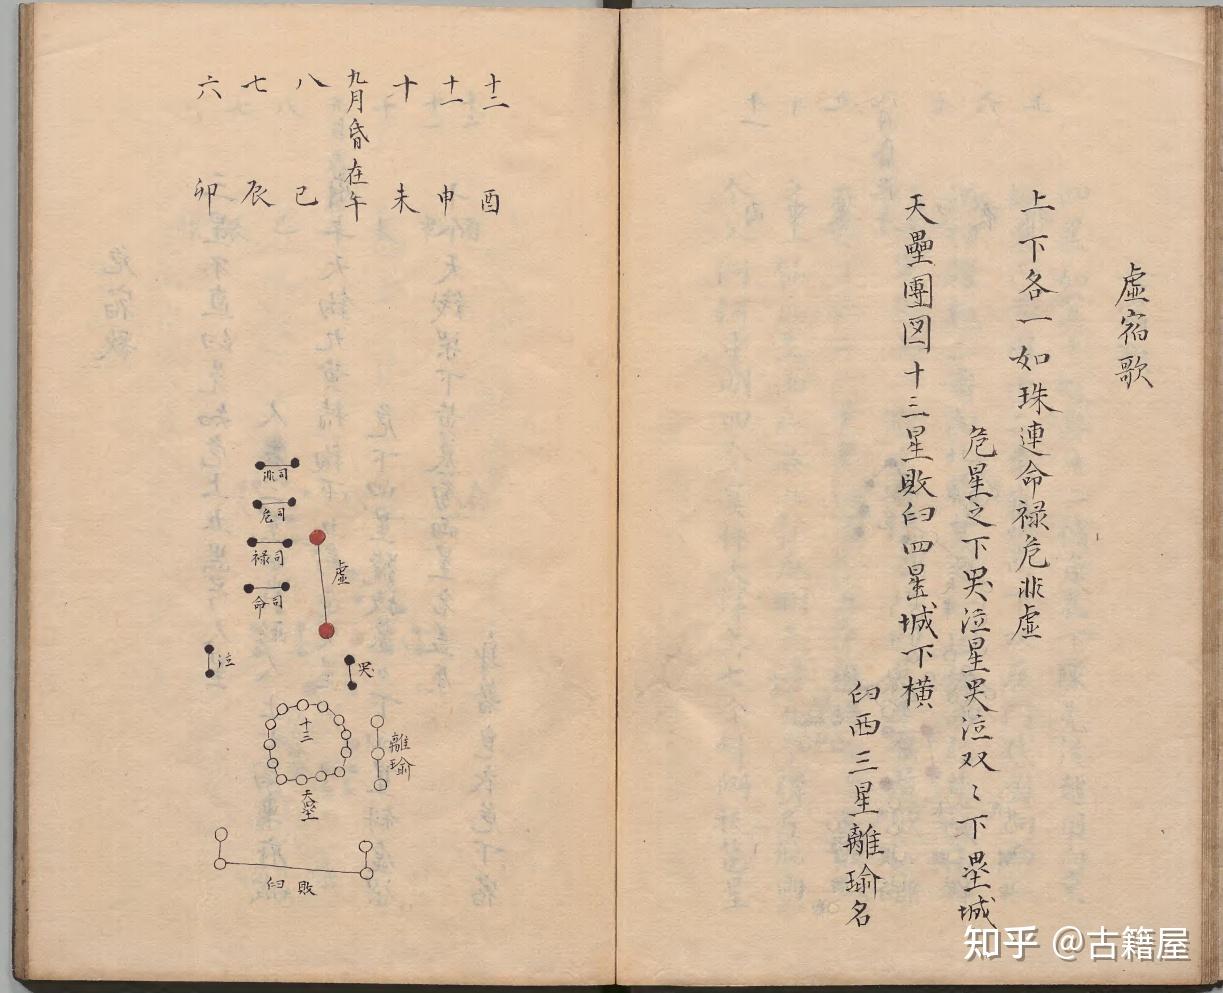 虛宿歌
上下各一如珠連命禄危非虛
危星之下哭泣星哭泣双〻下壘城
天壘團图十三星敗臼四星城下橫
臼西三星離瑜名
十二 酉
十一 申
十 未
九月昏在午
八 巳
七 辰
六 卯
非司
危司
禄司
命司
虛
泣
哭
十三
天壘
離瑜
臼敗
知乎 @古籍屋